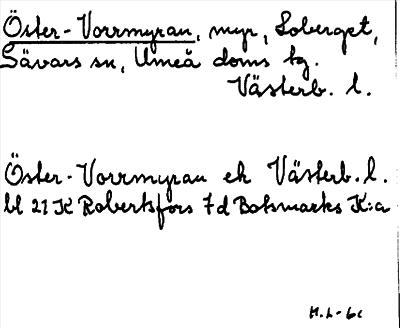 Öster-Vorrmyran, myr, Loberget,
Sävars sn, Umeå doms tg.
Västerb. l.
Öster-Vorrmyran ek Västerb. l.
bl 21 K Robertsfors 7d Botsmarks K:a